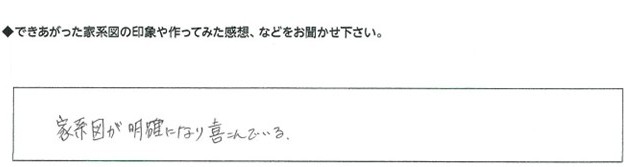 ◆できあがった家系図の印象や作ってみた感想、などをお聞かせ下さい。
家系図が明確になり喜こんでいる.